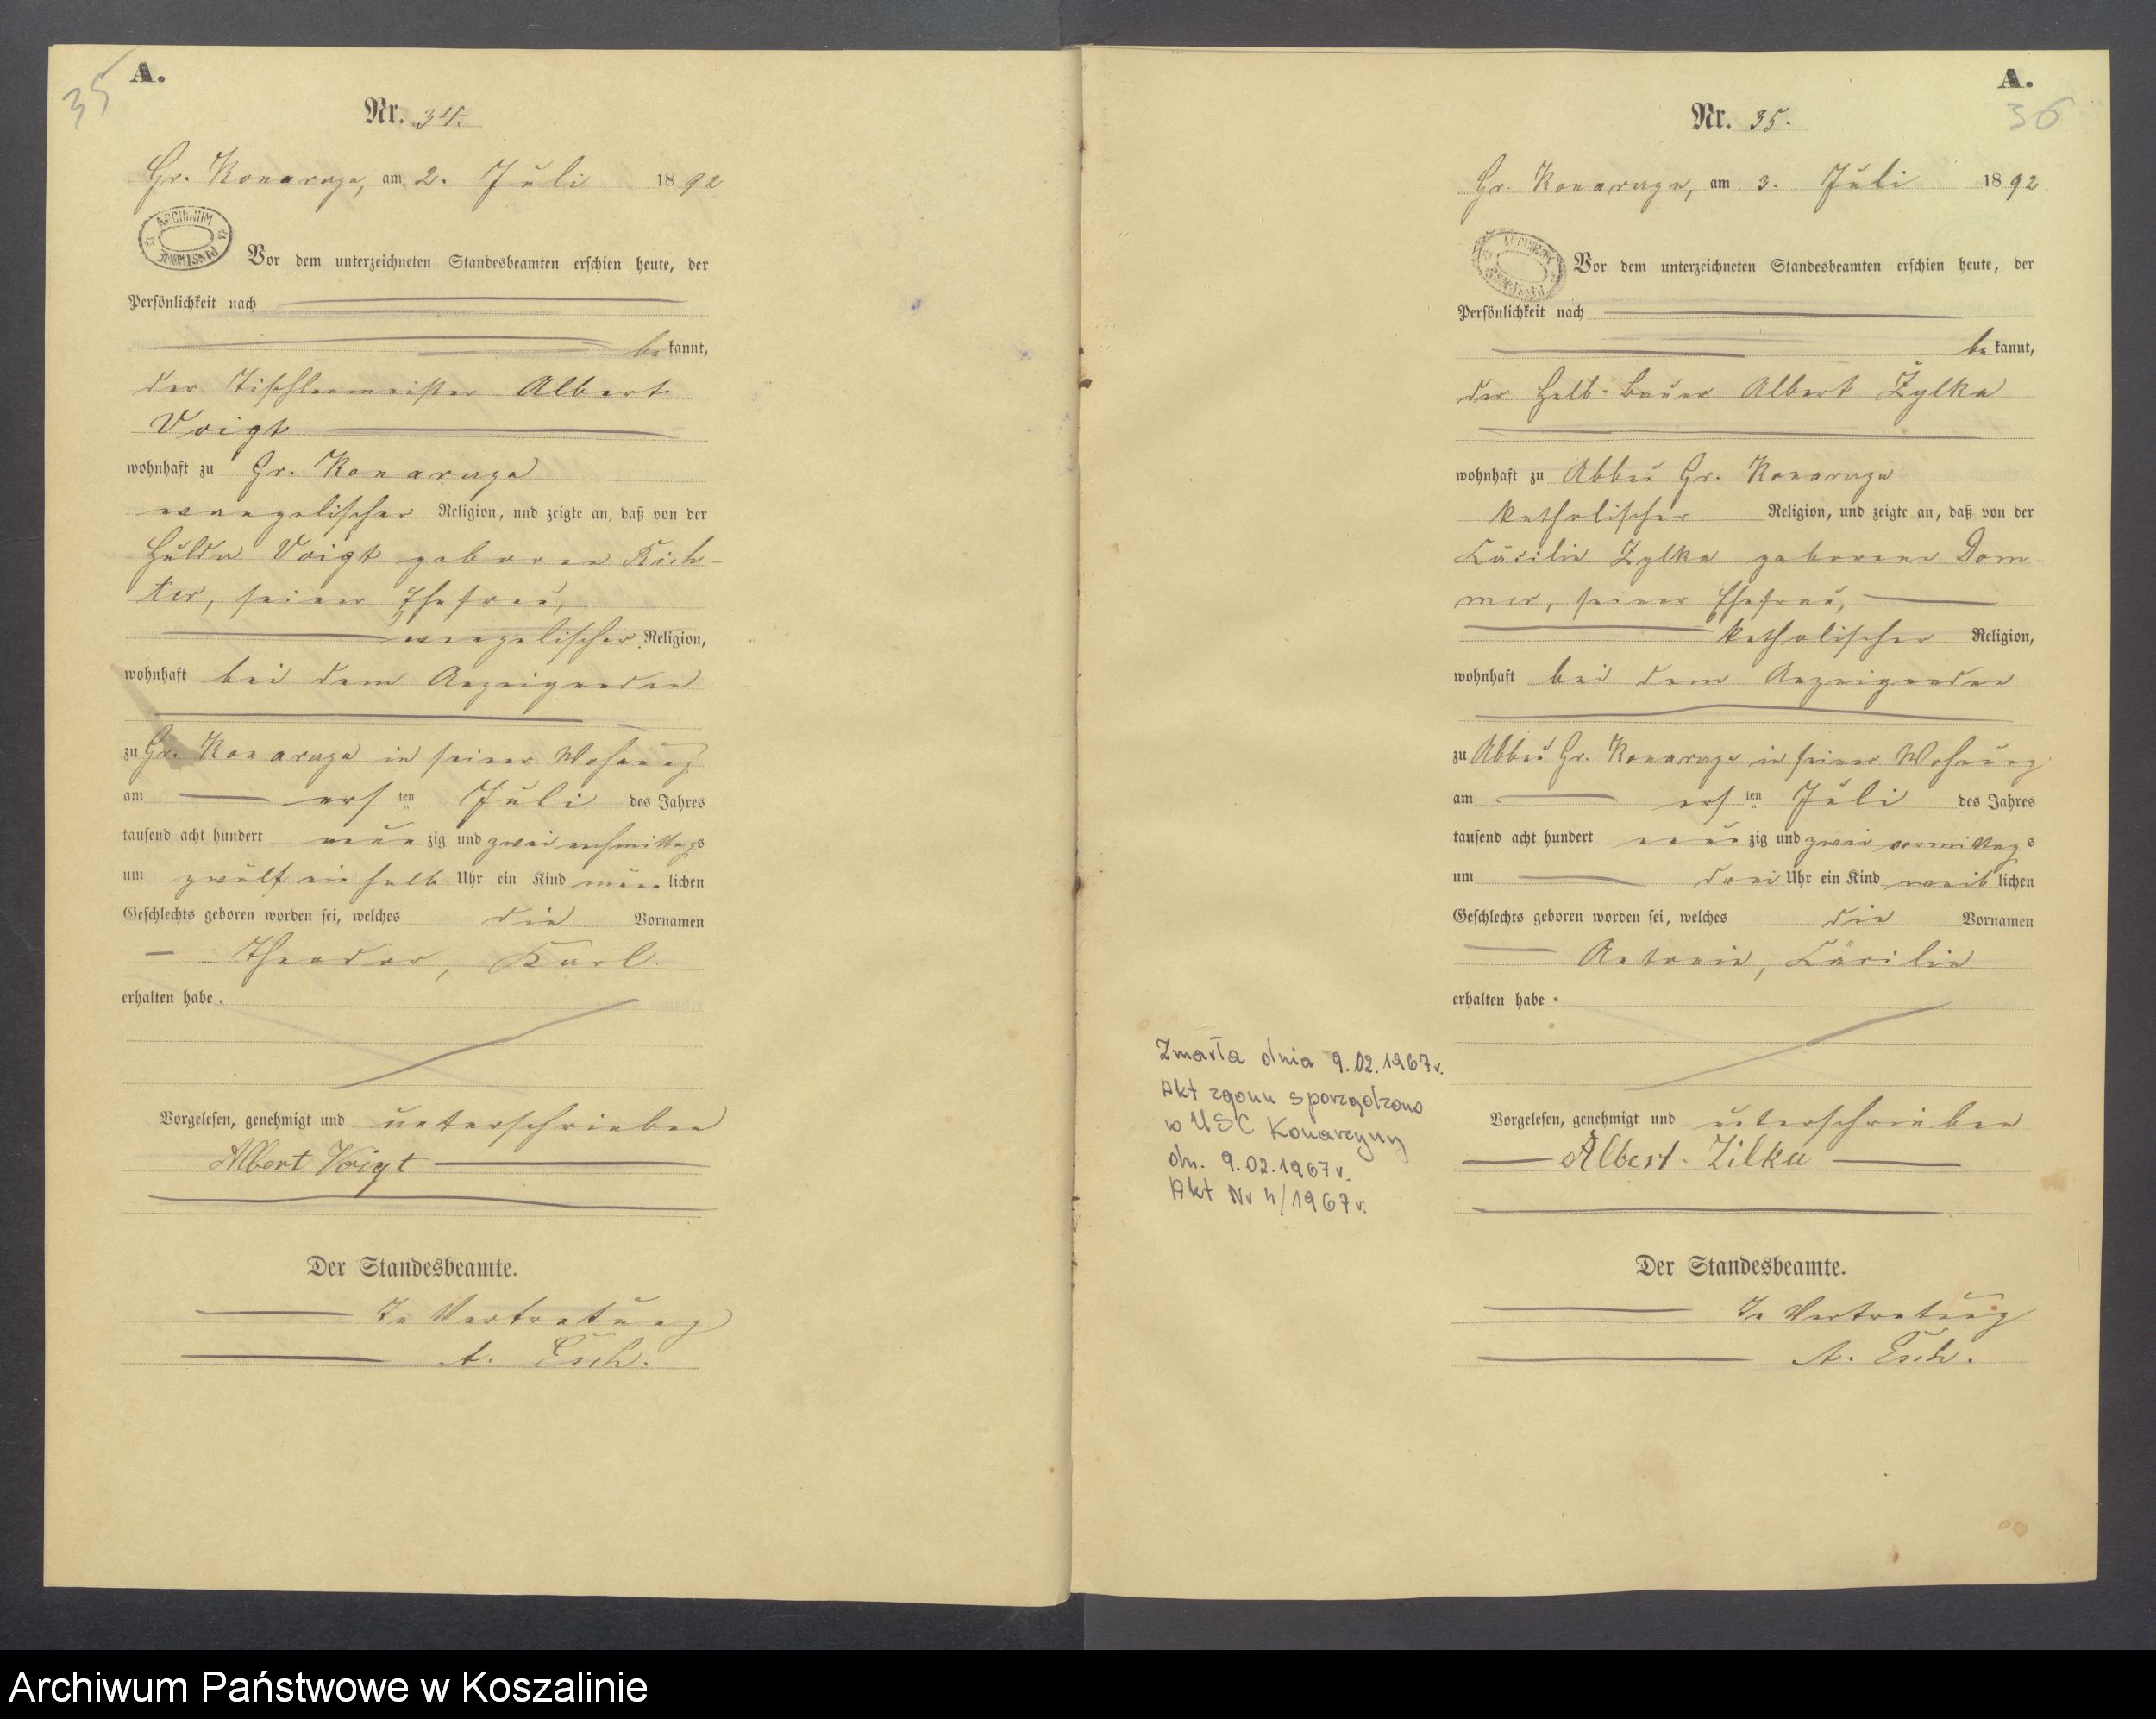 35
A.
Nr. 34.
Gr. Konarczyn, am 2. Juli 1892
ARCHIWUM PAŃSTWOWE
Vor dem unterzeichneten Standesbeamten erschien heute, der
Persönlichkeit nach
bekannt,
der Tischlermeister Albert
Voigt
wohnhaft zu Gr. Konarczyn
evangelischer Religion, und zeigte an, daß von der
Hulda Voigt geboren Rich-
ter, seiner Ehefrau,
evangelischer Religion,
wohnhaft bei dem Anzeigenden
zu Gr. Konarczyn in seiner Wohnung
am ersten Juli des Jahres
tausend acht hundert neunzig und zwei nachmittags
um zwölf ein halb Uhr ein Kind männlichen
Geschlechts geboren worden sei, welches die Vornamen
Theodor, Karl
erhalten habe.
Vorgelesen, genehmigt und unterschrieben
Albert Voigt
Der Standesbeamte.
In Vertretung
A. Esch.
A.
36
Nr. 35.
Gr. Konarczyn, am 3. Juli 1892
ARCHIWUM PAŃSTWOWE
Vor dem unterzeichneten Standesbeamten erschien heute, der
Persönlichkeit nach
bekannt,
der Halb-Bauer Albert Żylka
wohnhaft zu Abbau Gr. Konarczyn
katholischer Religion, und zeigte an, daß von der
Cäcilie Zylka geborene Dom-
mer, seiner Ehefrau,
katholischer Religion,
wohnhaft bei dem Anzeigenden
zu Abbau Gr. Konarczyn in seiner Wohnung
am ersten Juli des Jahres
tausend acht hundert neunzig und zwei vormittags
um drei Uhr ein Kind weiblichen
Geschlechts geboren worden sei, welches die Vornamen
Antonie, Cäcilie
erhalten habe.
Zmarła dnia 9.02.1967r.
Akt zgonu sporządzono
w USC Konarzyny
dn. 9.02.1967r.
Akt Nr 4/1967r.
Vorgelesen, genehmigt und unterschrieben
Albert Zilka
Der Standesbeamte.
In Vertretung
A. Esch.
Archiwum Państwowe w Koszalinie